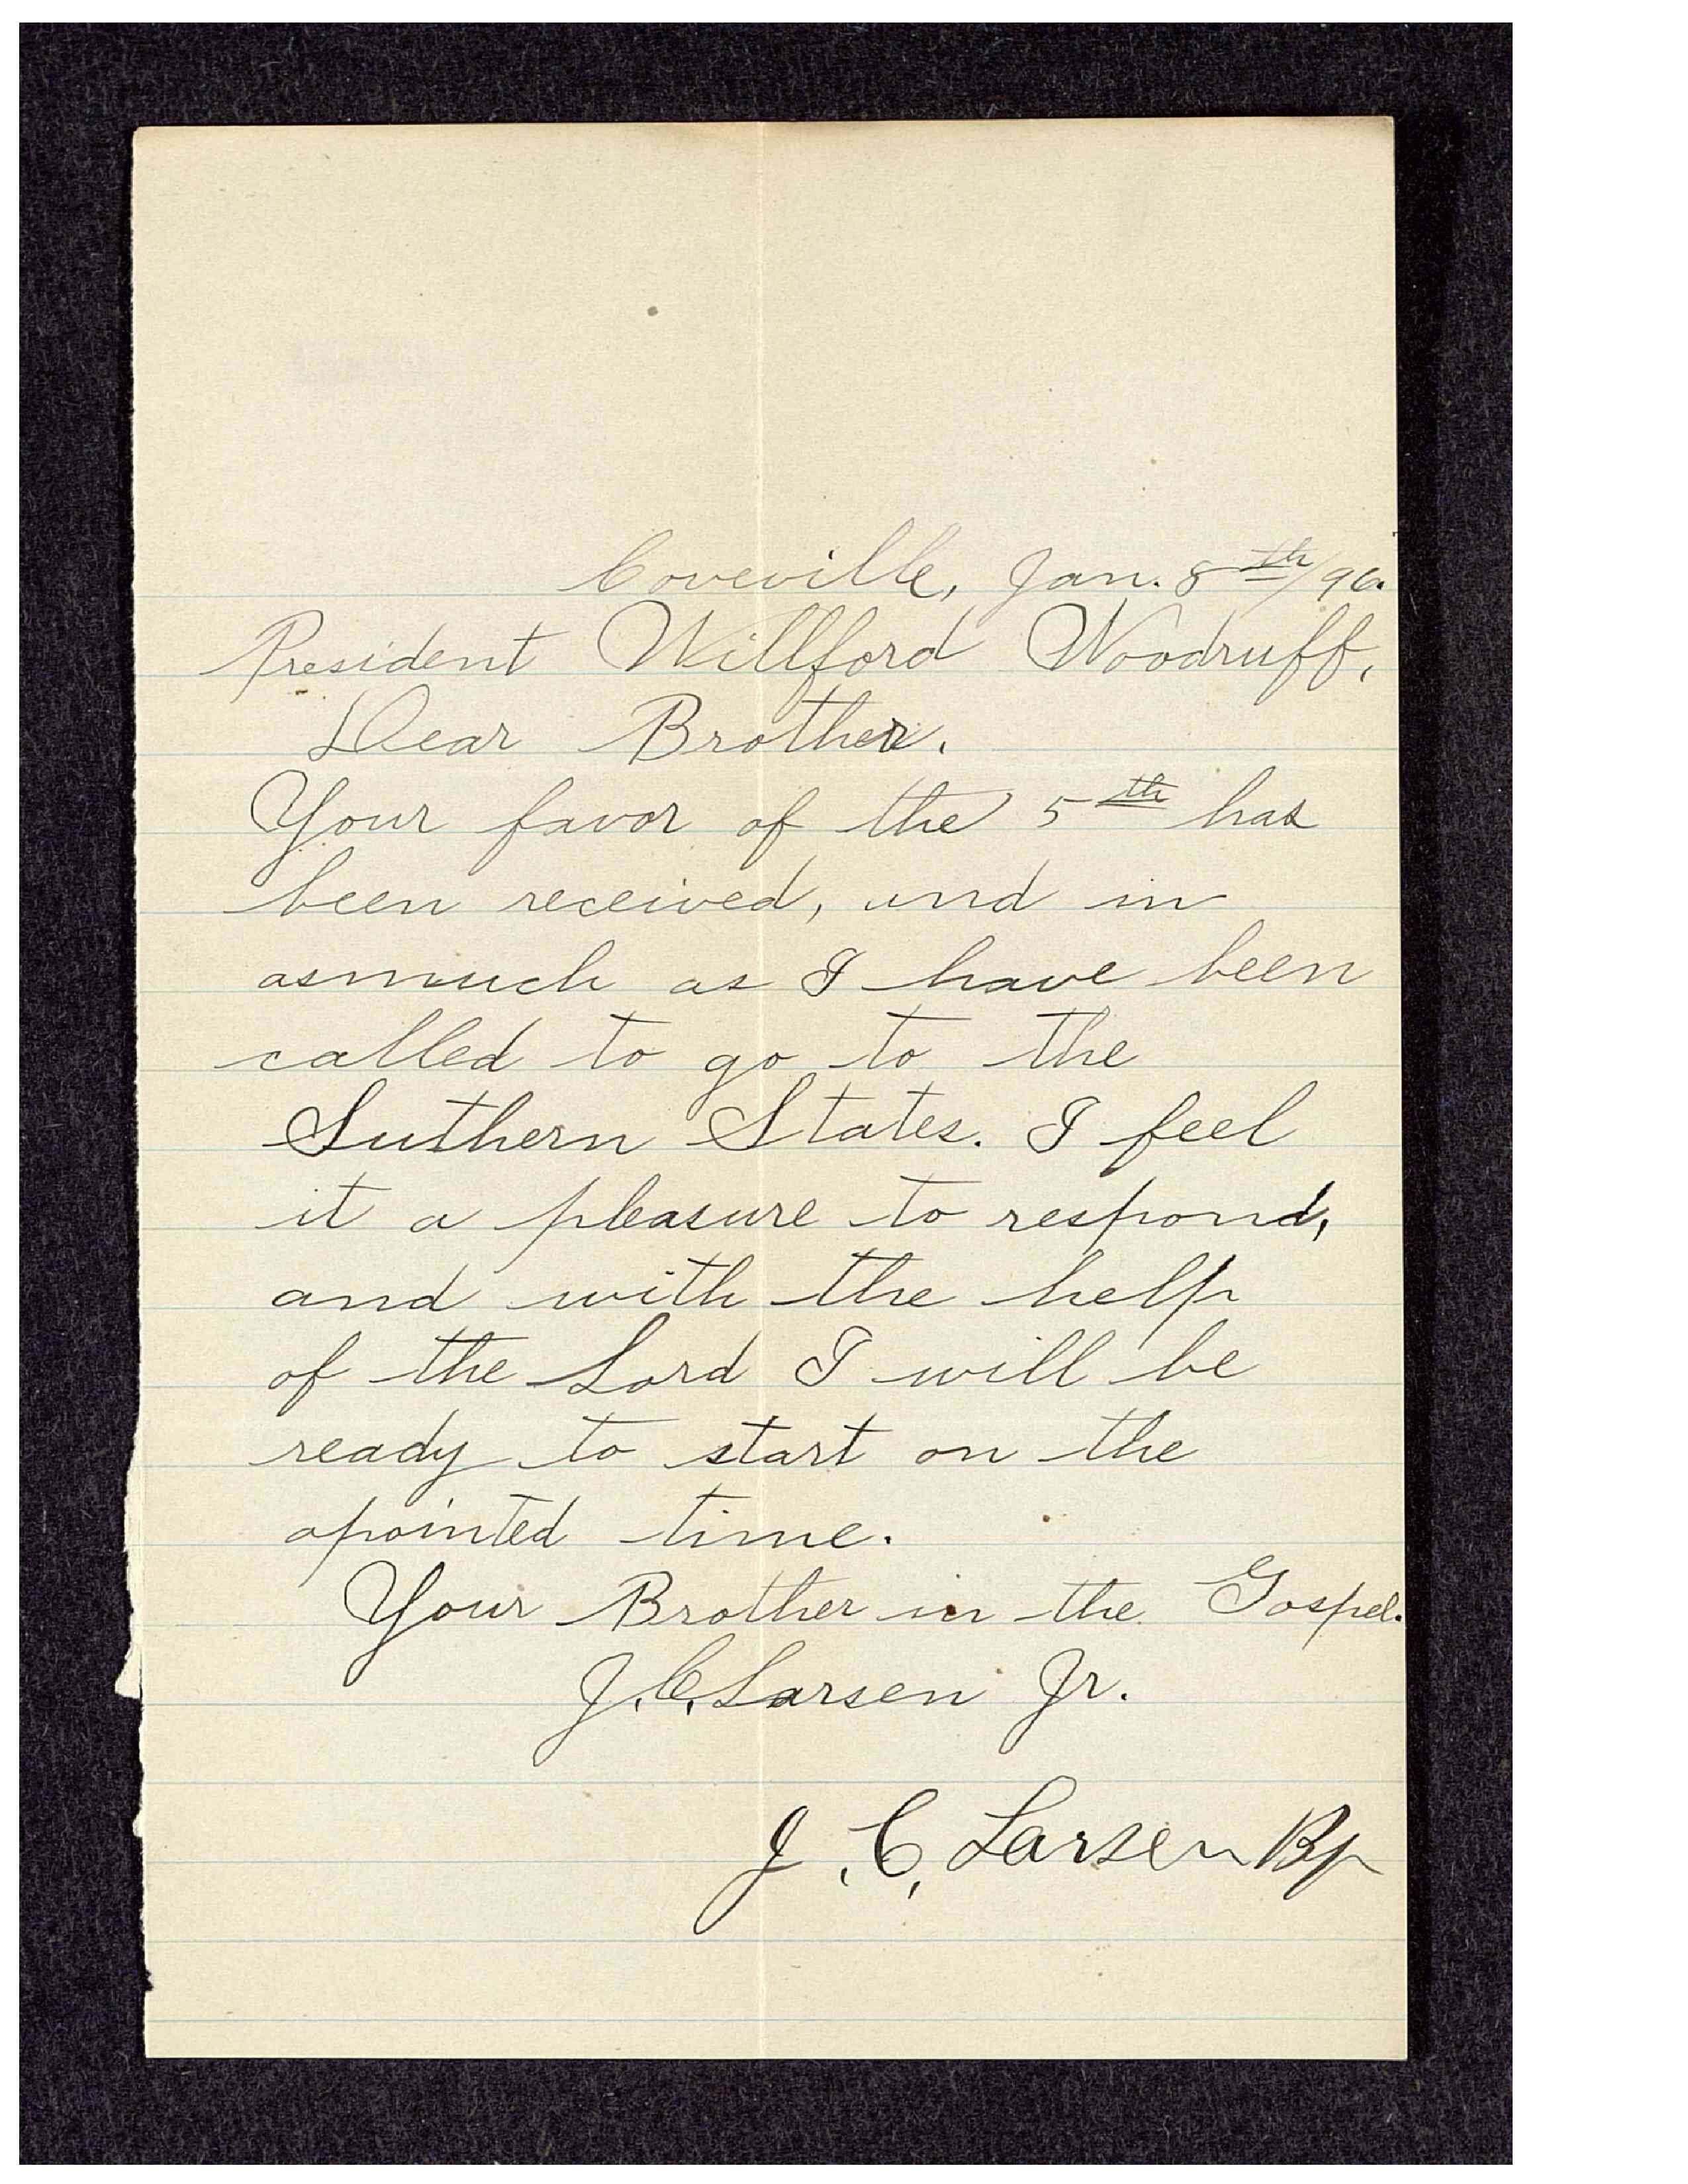 Coveville, Jan. 8th/96.
President Willford Woodruff,
Dear Brother.
Your favor of the 5th has
been received, and in
asmuch as I have been
called to go to the
Suthern States. I feel
it a pleasure to respond,
and with the help
of the Lord I will be
ready to start on the
apointed time.
Your Brother in the Gospel.
J. C. Larsen Jr.
J. C. Larsen Bp